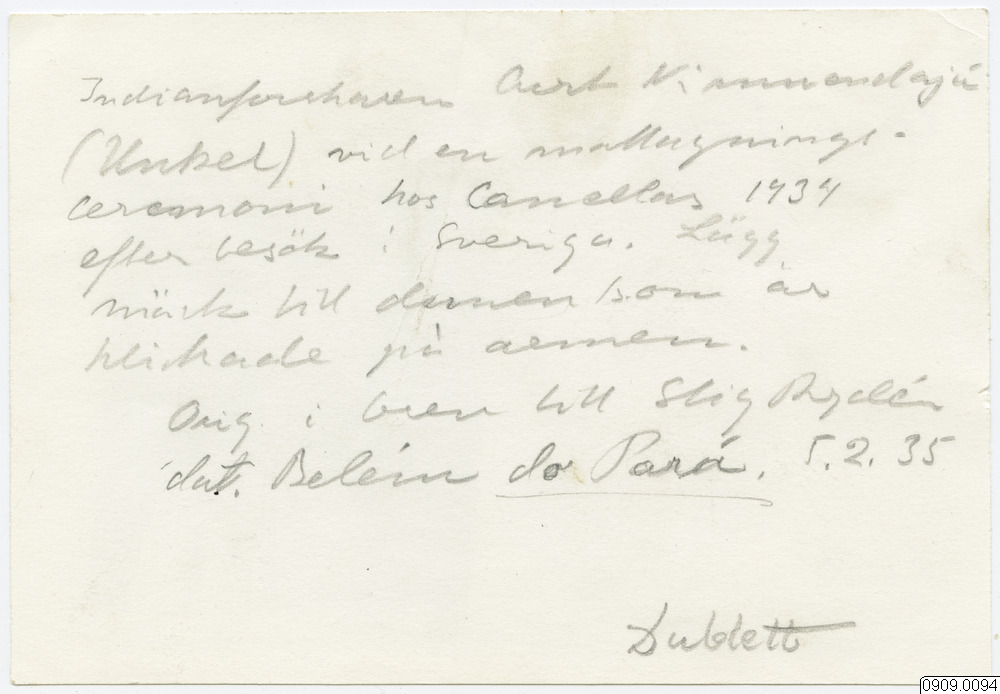 Indianforskaren Curt Nimuendajú
(Unkel) vid en mottagnings-
ceremoni hos Canellas 1934
efter besök i Sverige. Lägg
märk till dunen som är
klistrade på armen.
Orig. i brev till Stig Rydén
dat. Belém do Pará. 5.2.35
Dublett
0909.0094